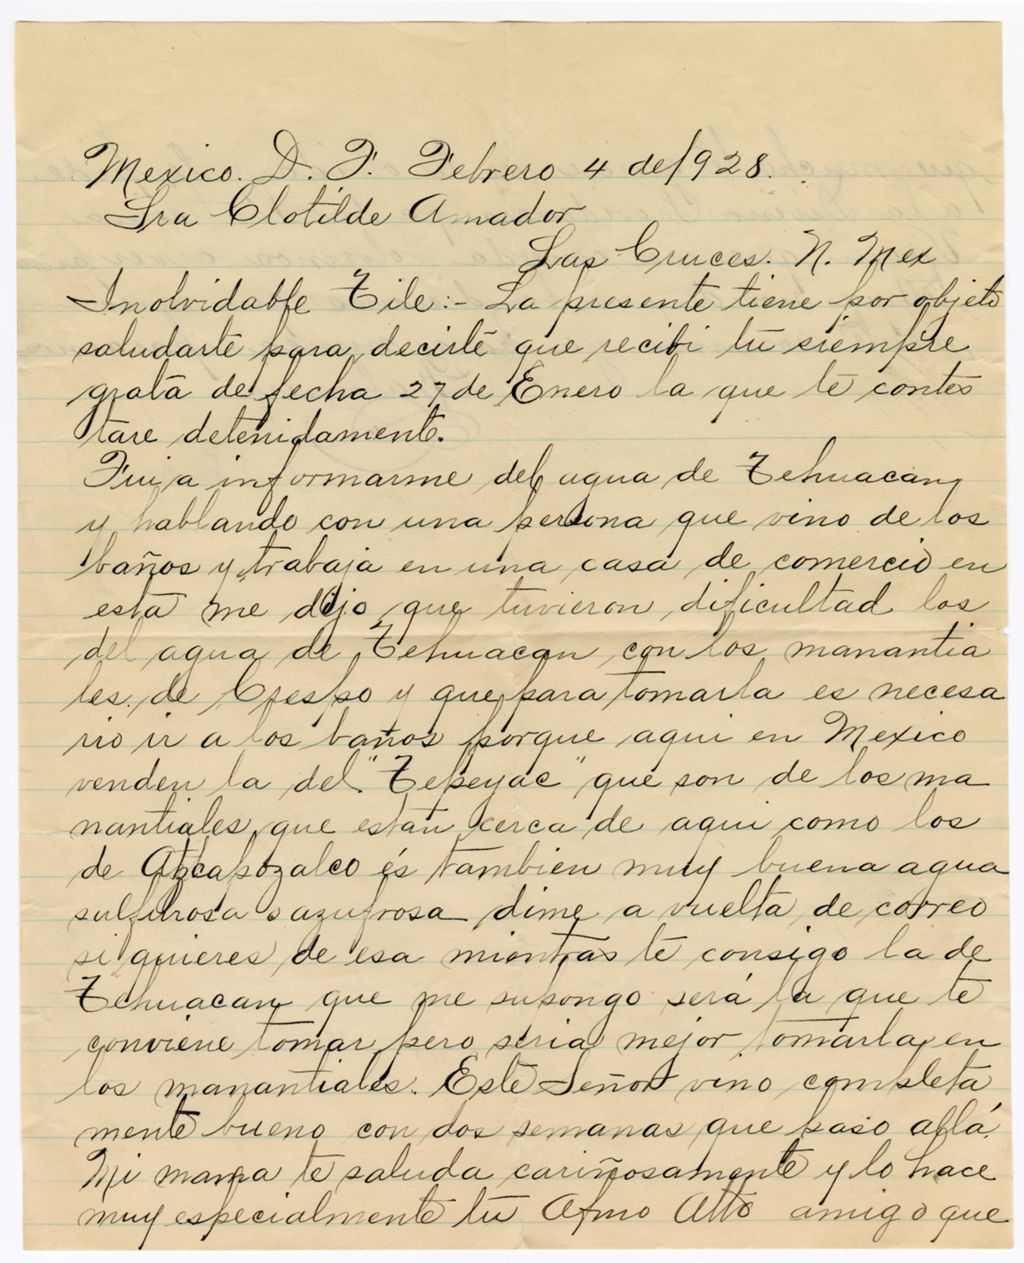 Mexico. D. F. Febrero 4 de 1928.
Sra Clotilde Amador
Las Cruces. N. Mex
Inolvidable Tile:- La presente tiene por objeto
saludarte para decirte que recibi tu siempre
grata de fecha 27 de Enero la que te contes
tare detenidamente.
Fui a informarme del agua de Tehuacan
y hablando con una persona que vino de los
baños y trabaja en una casa de comercio en
esta me dijo que tuvieron dificultad los
del agua de Tehuacan con los manantia
les de Crespo y que para tomarla es necesa
rio ir a los baños porque aqui en Mexico
venden la del "Tepeyac" que son de los ma
nantiales que estan cerca de aqui como los
de Atzcapozalco és tambien muy buena agua
sulfurosa o azufrosa dime a vuelta de correo
si quieres de esa mientras te consigo la de
Tehuacan que me supongo será la que te
conviene tomar pero seria mejor tomarla en
los manantiales. Este Señor vino completa
mente bueno con dos semanas que paso allá.
Mi mama te saluda cariñosamente y lo hace
muy especialmente tu Afmo Atto amigo que